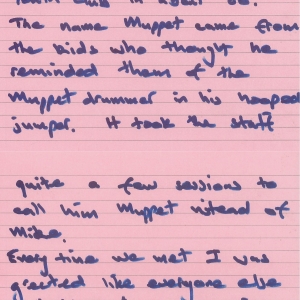 The name Muppet came from
the kids who thought he
reminded them of the
Muppet drummer in his hooped
jumper. It took the staff
quite a few sessions to
call him Muppet instead of
Mike.
Every time we met I was
greeted like everyone else